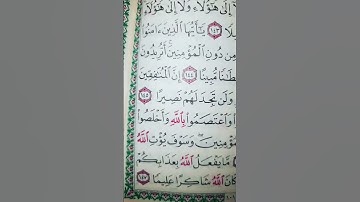 إِلَىٰ هَٰٓؤُلَآءِ وَلَآ إِلَىٰ هَٰٓؤُلَآءِ
١٤٣ يَٰٓأَيُّهَا ٱلَّذِينَ ءَامَنُوا۟
مِن دُونِ ٱلْمُؤْمِنِينَ أَتُرِيدُونَ
مُّبِينًا ١٤٤ إِنَّ ٱلْمُنَٰفِقِينَ
وَلَن تَجِدَ لَهُمْ نَصِيرًا ١٤٥
وَٱعْتَصَمُوا۟ بِٱللَّهِ وَأَخْلَصُوا۟
وَسَوْفَ يُؤْتِ ٱللَّهُ
مَّا يَفْعَلُ ٱللَّهُ بِعَذَابِكُمْ
ٱللَّهُ شَاكِرًا عَلِيمًا ١٤٧